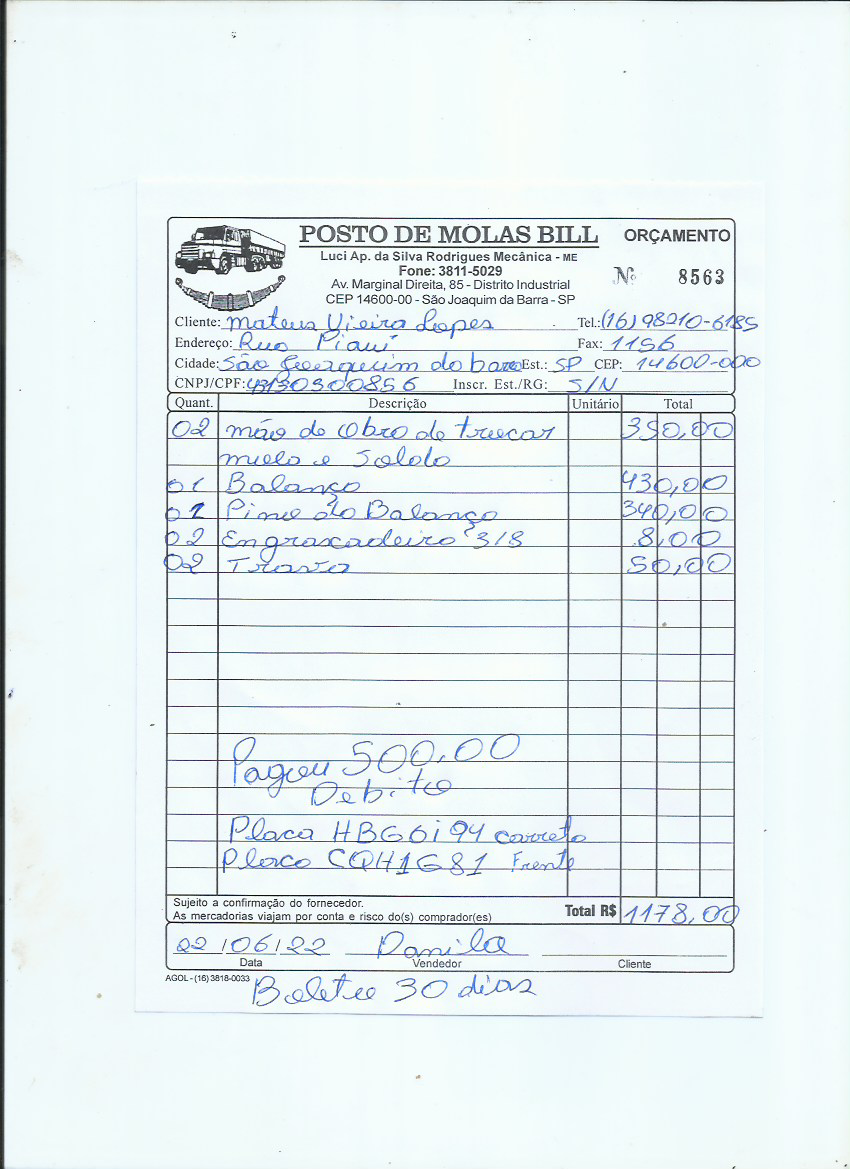 POSTO DE MOLAS BILL
ORÇAMENTO
Luci Ap. da Silva Rodrigues Mecânica - ME
Fone: 3811-5029
Nº 8563
Av. Marginal Direita, 85 - Distrito Industrial
CEP 14600-00 - São Joaquim da Barra - SP
Cliente: Mateus Vieira Lopes Tel.: (16) 98210-6185
Endereço: Rua Piauí Fax: 1156
Cidade: São Joaquim da barra Est.: SP CEP: 14600-000
CNPJ/CPF: 43130300856 Inscr. Est./RG: S/N
Quant. Descrição Unitário Total
02 mão de obra de trucar 350,00
mola e Solda
01 Balanço 430,00
01 Pino do Balanço 340,00
02 Engraxadeira 3/8 8,00
02 Trava 50,00
Pagou 500,00
Debito
Placa HBG6i94 carreta
Placa CQH1G81 Frente
Sujeito a confirmação do fornecedor.
As mercadorias viajam por conta e risco do(s) comprador(es)
Total R$ 1178,00
22/06/22 Danila
Data Vendedor Cliente
AGOL - (16) 3818-0033
Boleto 30 dias